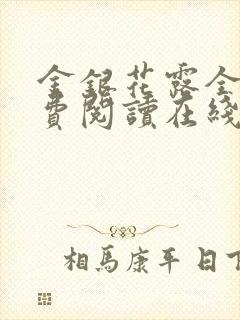 金銀花露全
費閱讀在綫
相馬康平 日下